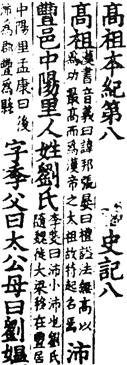 高祖本紀第八 史記八
高祖漢書音義曰諱邦張晏曰禮謚法無高以爲功最高而爲漢帝之太祖故特起名焉沛
豐邑中陽里人姓劉氏李斐曰沛小沛也劉氏隨魏徙大梁移在豐居
中陽里孟康曰後沛爲郡豐爲縣字季父曰太公母曰劉媼